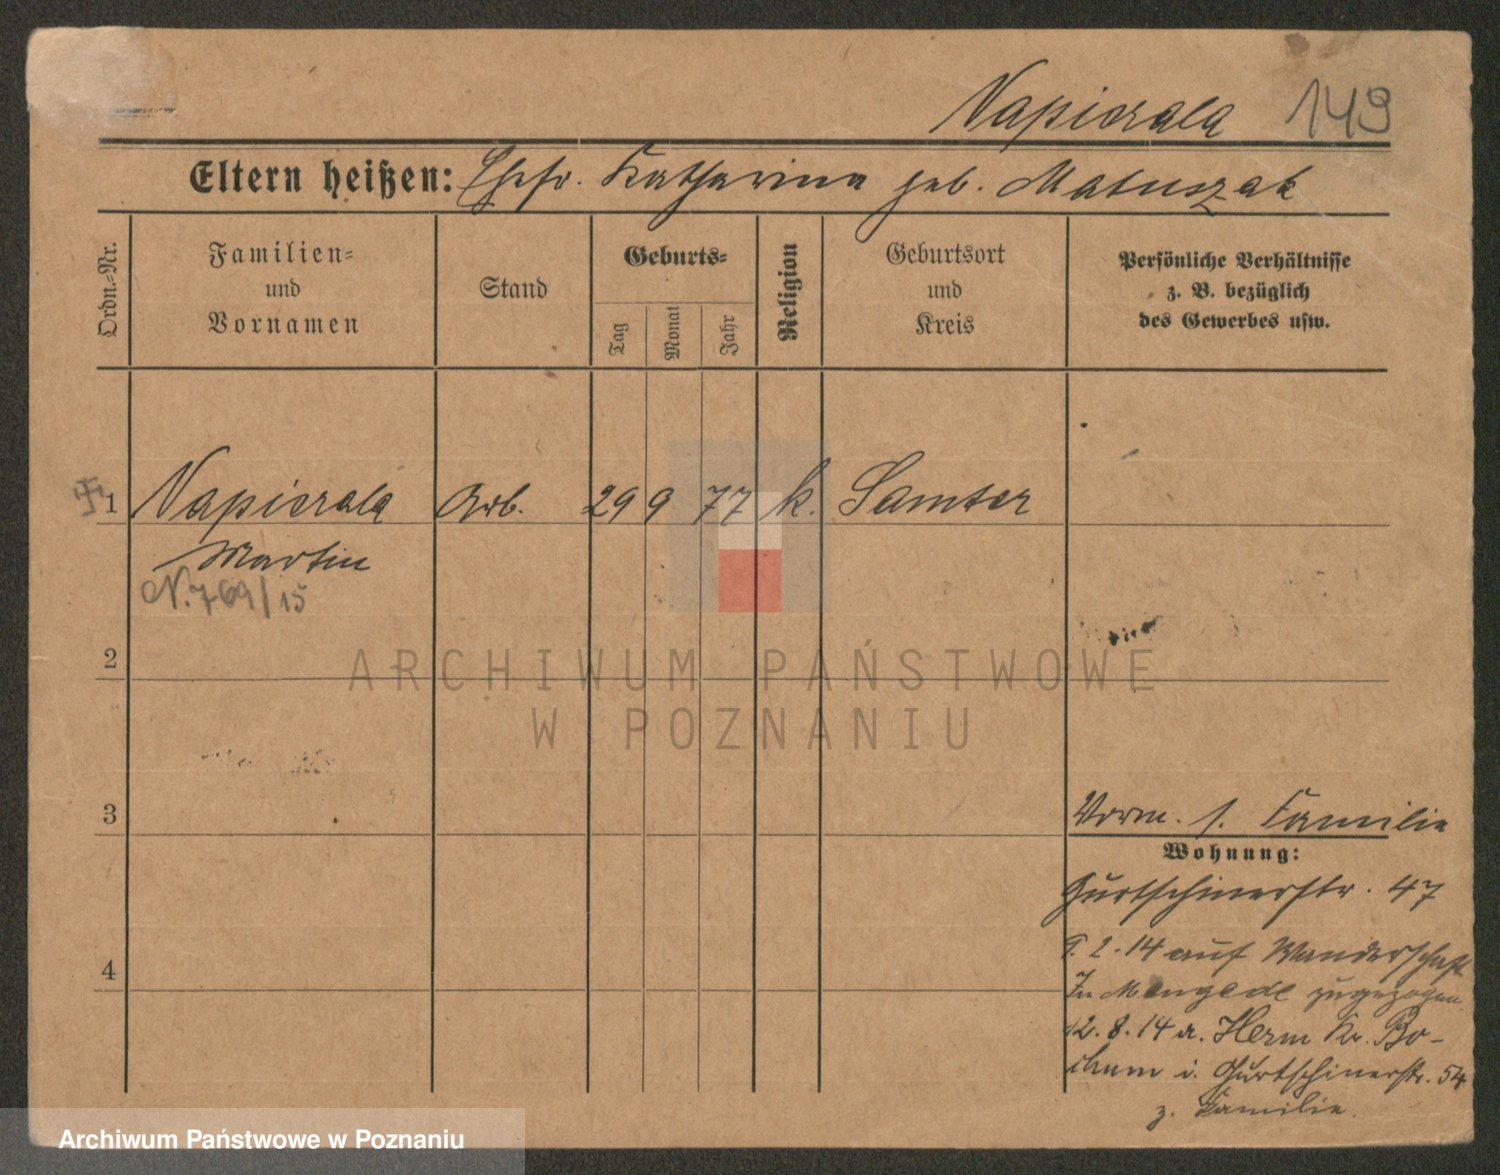 Napierala 149
Eltern heißen: Ehefr. Katharina geb. Matuszak
Ordn.-Nr.
Familien-
und
Vornamen
Stand
Geburts-
Tag
Monat
Jahr
Religion
Geburtsort
und
Kreis
Persönliche Verhältnisse
z. B. bezüglich
des Gewerbes usw.
1 Napierala Arb. 29 9 77 k. Samter
Martin
N. 769/15
2
3
Vorm. s. Familie
Wohnung:
Gurtschinerstr. 47
9.2.14 auf Wanderschaft
In Mengede zugezogen
4
12.8.14 a. Herm Kr. Bo-
chum i. Gurtschinerstr. 54
z. Familie.
ARCHIWUM PAŃSTWOWE
W POZNANIU
Archiwum Państwowe w Poznaniu